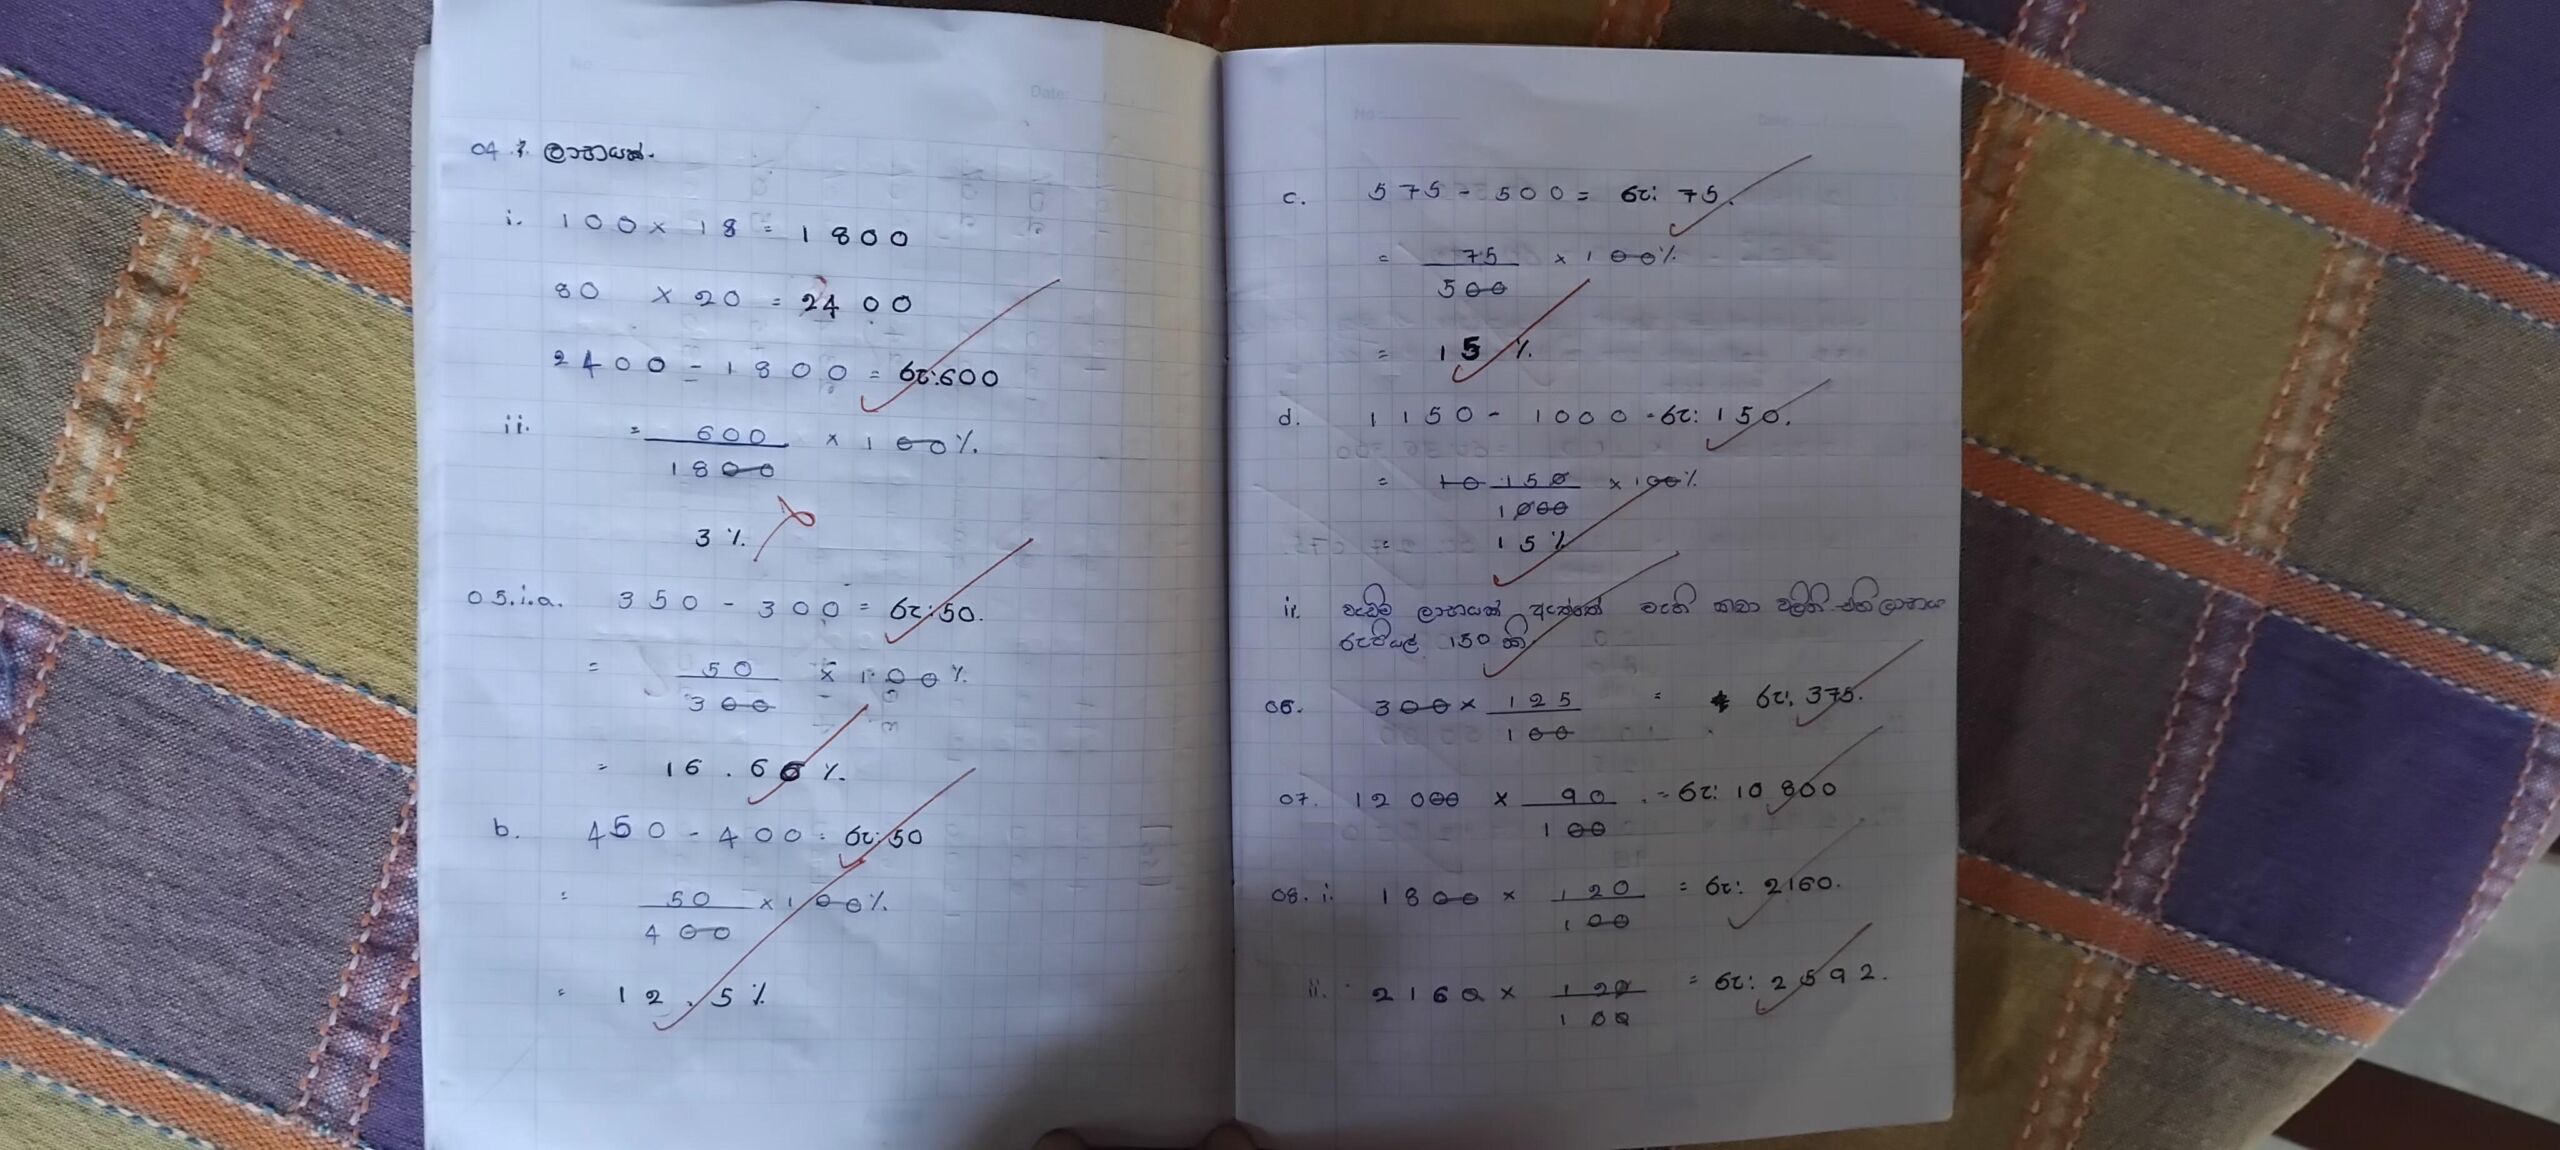 Date:
04. ලාභයක්.
i. 100 × 18 = 1800
80 × 20 = 2400
2400 - 1800 = රු: 600
ii. = 600 × 100%
1800
3%
05. i. a. 350 - 300 = රු: 50.
= 50 × 100%
300
= 16.66%
b. 450 - 400 = රු: 50
= 50 × 100%
400
= 12.5%
No:
Date:
c. 575 - 500 = රු: 75.
= 75 × 100%
500
= 15%
d. 1150 - 1000 = රු: 150.
= 10 150 × 100%
1000
= 15%
ii. වැඩිම ලාභයක් ඇත්තේ මැති කඩා වලිනි එහි ලාභය
රුපියල් 150 කි.
06. 300 × 125 = රු: 375.
100
07. 12000 × 90 = රු: 10800
100
08. i. 1800 × 120 = රු: 2160.
100
ii. 2160 × 120 = රු: 2592.
100